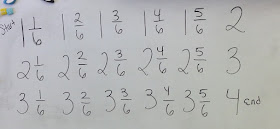 Start 1 1/6 1 2/6 1 3/6 1 4/6 1 5/6 2
2 1/6 2 2/6 2 3/6 2 4/6 2 5/6 3
3 1/6 3 2/6 3 3/6 3 4/6 3 5/6 4 end